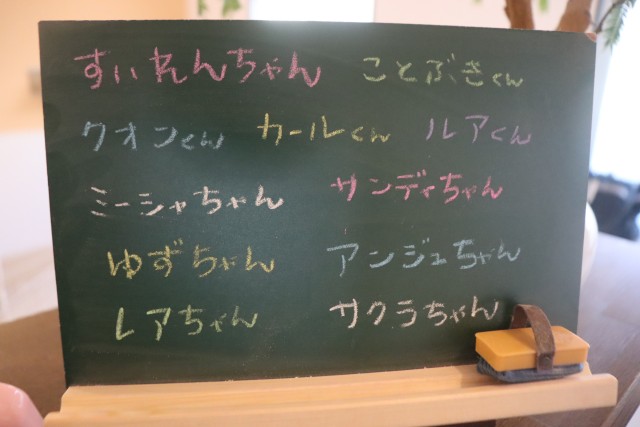 すいれんちゃん ことぶきくん
クオンくん カールくん ルアくん
ミーシャちゃん サンディちゃん
ゆずちゃん アンジュちゃん
レアちゃん サクラちゃん